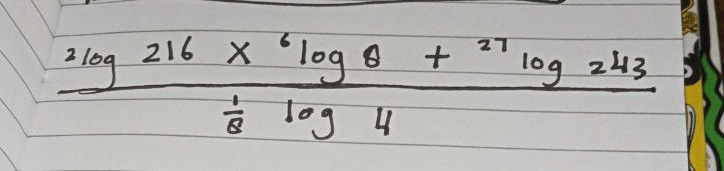 ²log 216 × ⁶log 8 + ²⁷log 243
⅛ log 4